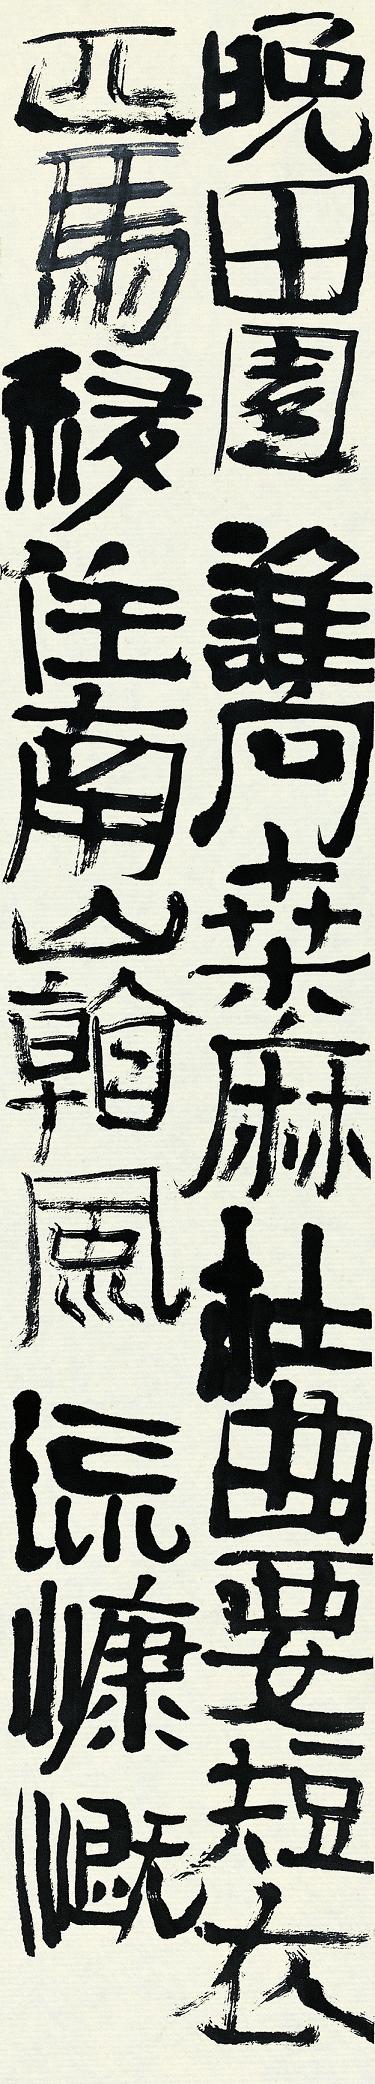 晚田園誰向桑麻杜曲要短衣
匹馬移住南山看風流慷慨